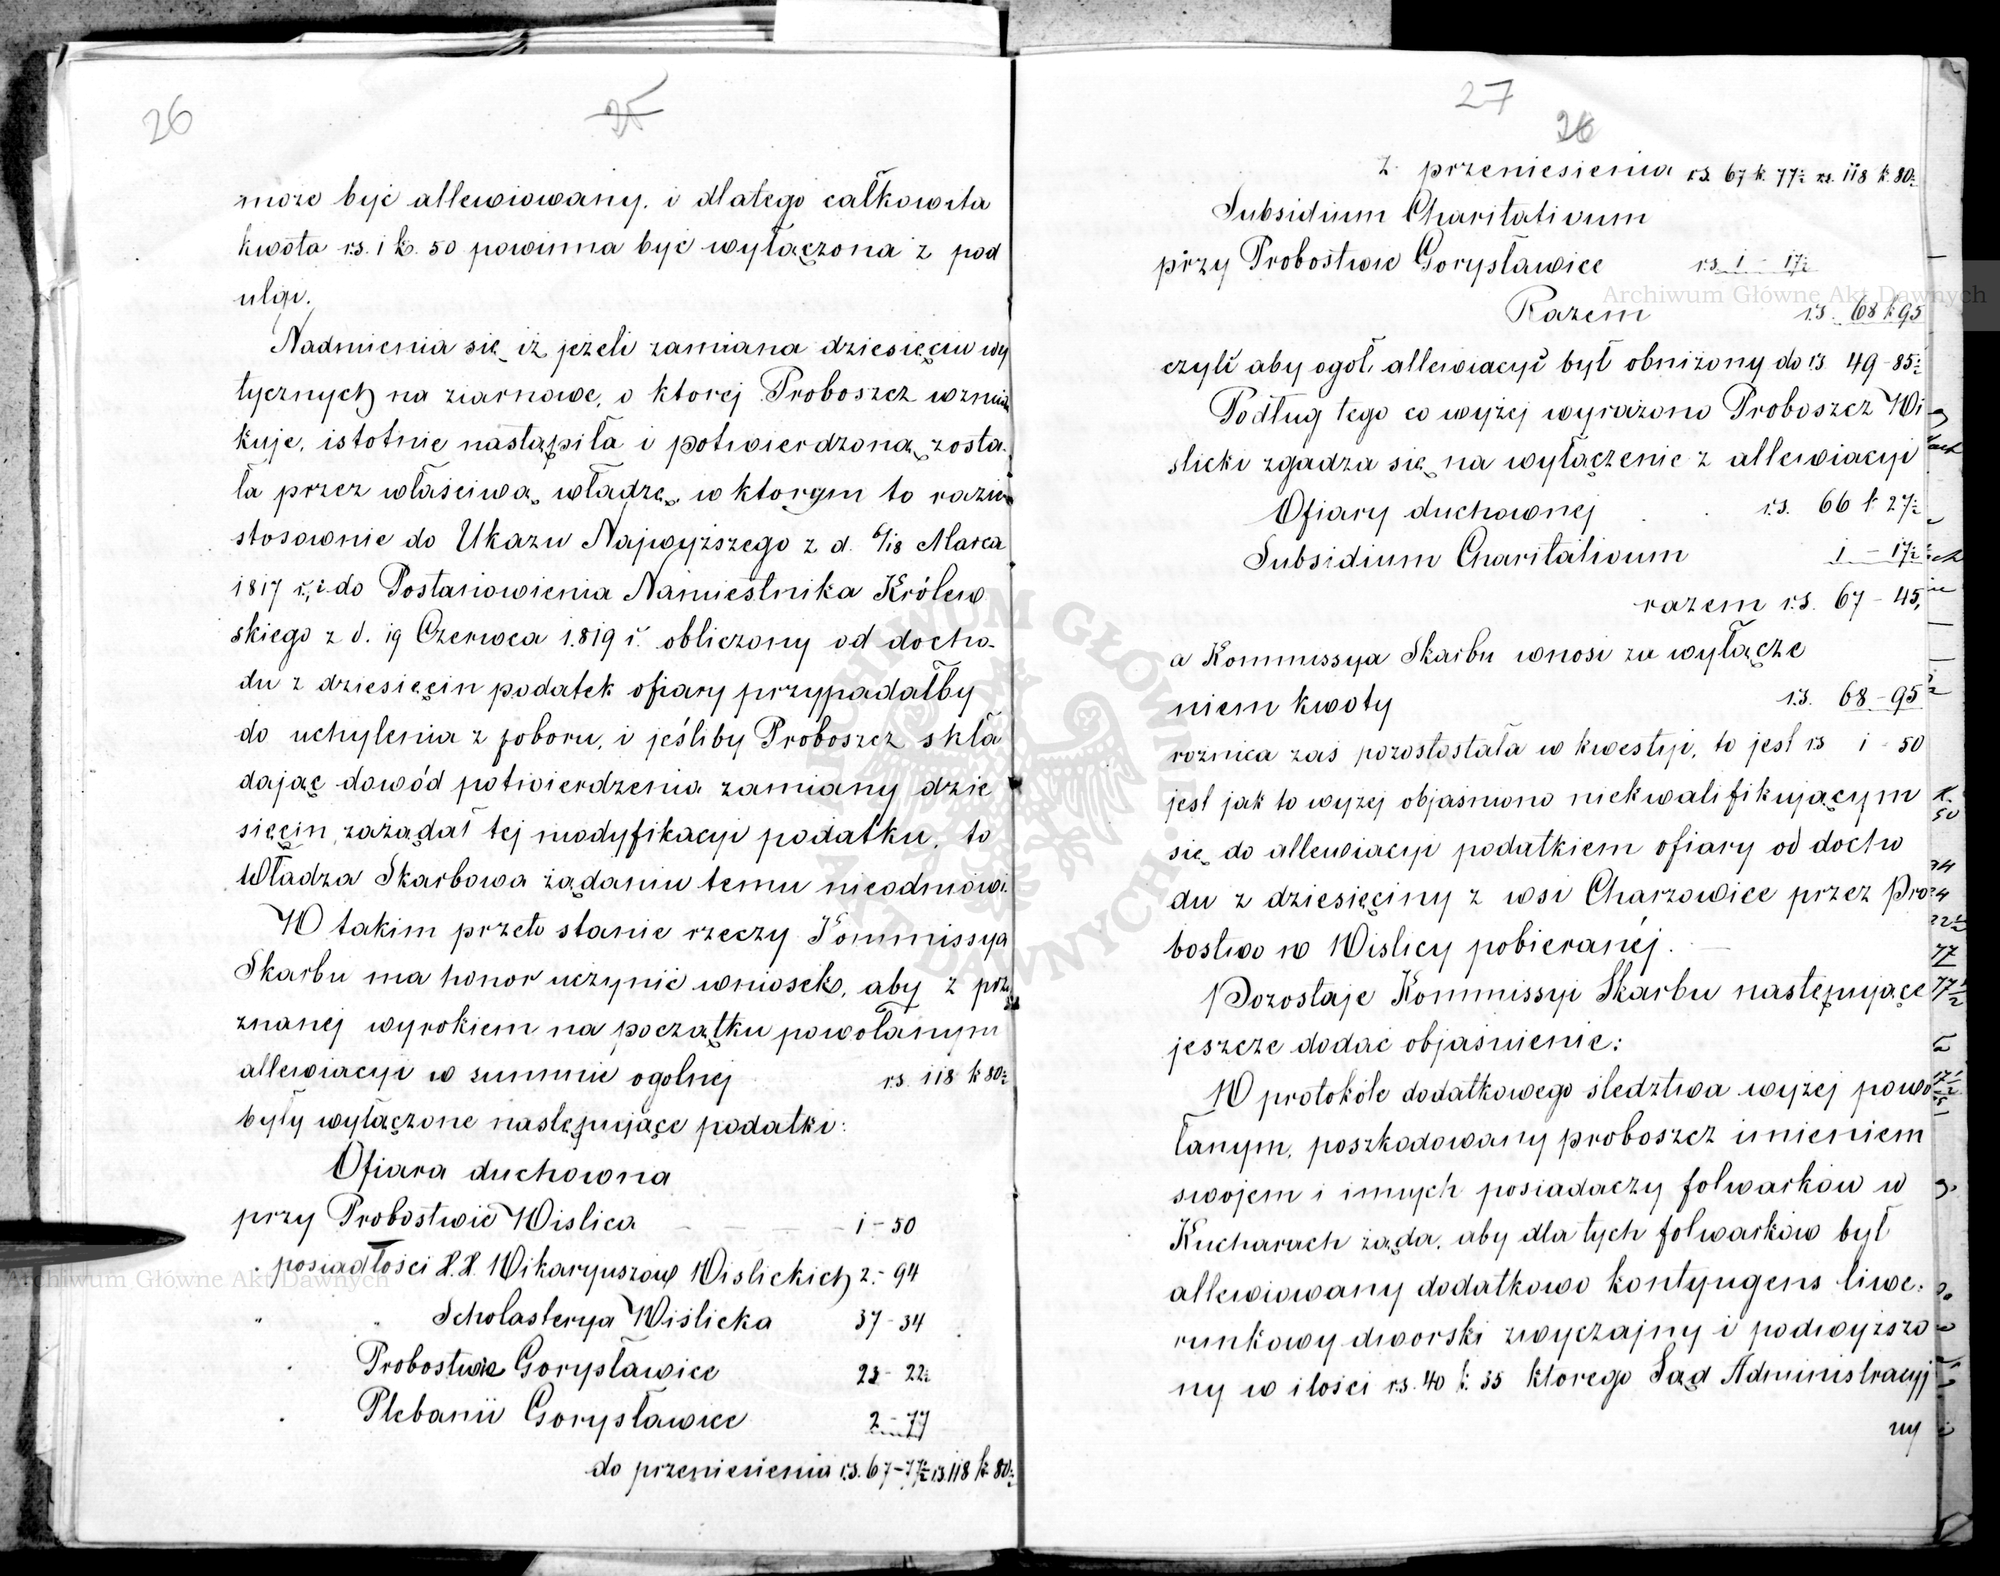 26
25
może być allewiowany. i dlatego całkowita
kwota rs. 1 k. 50 powinna być wyłączona z pod
ulgi.
Nadmienia się iż jeżeli zamiana dziesięcin wy
tycznych na ziarnowe, o ktorej Proboszcz wzmian
kuje, istotnie nastąpiła i potwierdzoną zosta
ła przez właściwą władzę, w ktorym to razie
stosownie do Ukazu Najwyższego z d. 6/18 Marca
1817 r., i do Postanowienia Namiestnika Królew
skiego z d. 19 Czerwca 1819 r. obliczony od docho-
du z dziesięcin podatek ofiary przypadałby
do uchylenia z poboru, i jeśliby Proboszcz skła
dając dowód potwierdzenia zamiany dzie
sięcin, zażądał tej modyfikacyi podatku, to
Władza Skarbowa żądaniu temu nieodmówi.
W takim przeto stanie rzeczy Kommissya
Skarbu ma honor uczynić wniosek, aby z przy
znanej wyrokiem na początku powołanym
allewiacyi w summie ogolnej rs. 118 k 80½
były wyłączone następujące podatki:
Ofiara duchowna
przy Probostwie Wislica 1 - 50
" posiadłości X.X. Wikaryuszów Wislickich 2 - 94
" " Scholasterya Wiślicka 37 - 34
" Probostwie Gorysławice 23 - 22½
" Plebanii Gorysławice 2 - 77
do przeniesienia rs. 67 - 77½ rs. 118 k 80½
27
26
z przeniesienia rs. 67 k. 77½ rs. 118 k. 80½
Subsidium Charitativum
przy Probostwie Gorysławice rs 1 - 17½
Razem rs. 68 k 95
czyli aby ogół allewiacyi był obniżony do rs 49 - 85½
Podług tego co wyżej wyrażono Proboszcz Wi
slicki zgadza się na wyłączenie z allewiacyi
Ofiary duchownej rs. 66 k 27½
Subsidium Charitativum 1 - 17½
razem rs. 67 - 45,
a Kommissya Skarbu wnosi za wyłącze
niem kwoty rs. 68 - 95
roznica zaś pozostostała w kwestyi, to jest rs 1 - 50
jest jak to wyzej objaśniono niekwalifikującym
się do allewiacyi podatkiem ofiary od docho
du z dziesięciny z wsi Charzowice przez Pro
bostwo w Wislicy pobieranéj.
Pozostaje Kommissyi Skarbu następujące
jeszcze dodać objaśnienie:
W protokóle dodatkowego śledztwa wyżej powo
łanym, poszkodowany proboszcz imieniem
swojem i innych posiadaczy folwarków w
Kucharach żąda, aby dla tych folwarków był
allewiowany dodatkowo kontyngens liwe.
runkowy dworski zwyczajny i podwyższo
ny w ilości rs. 40 k. 35 ktorego Sąd Administracyj
ny
Archiwum Główne Akt Dawnych
Archiwum Główne Akt Dawnych
ARCHIWUM GŁÓWNE AKT DAWNYCH